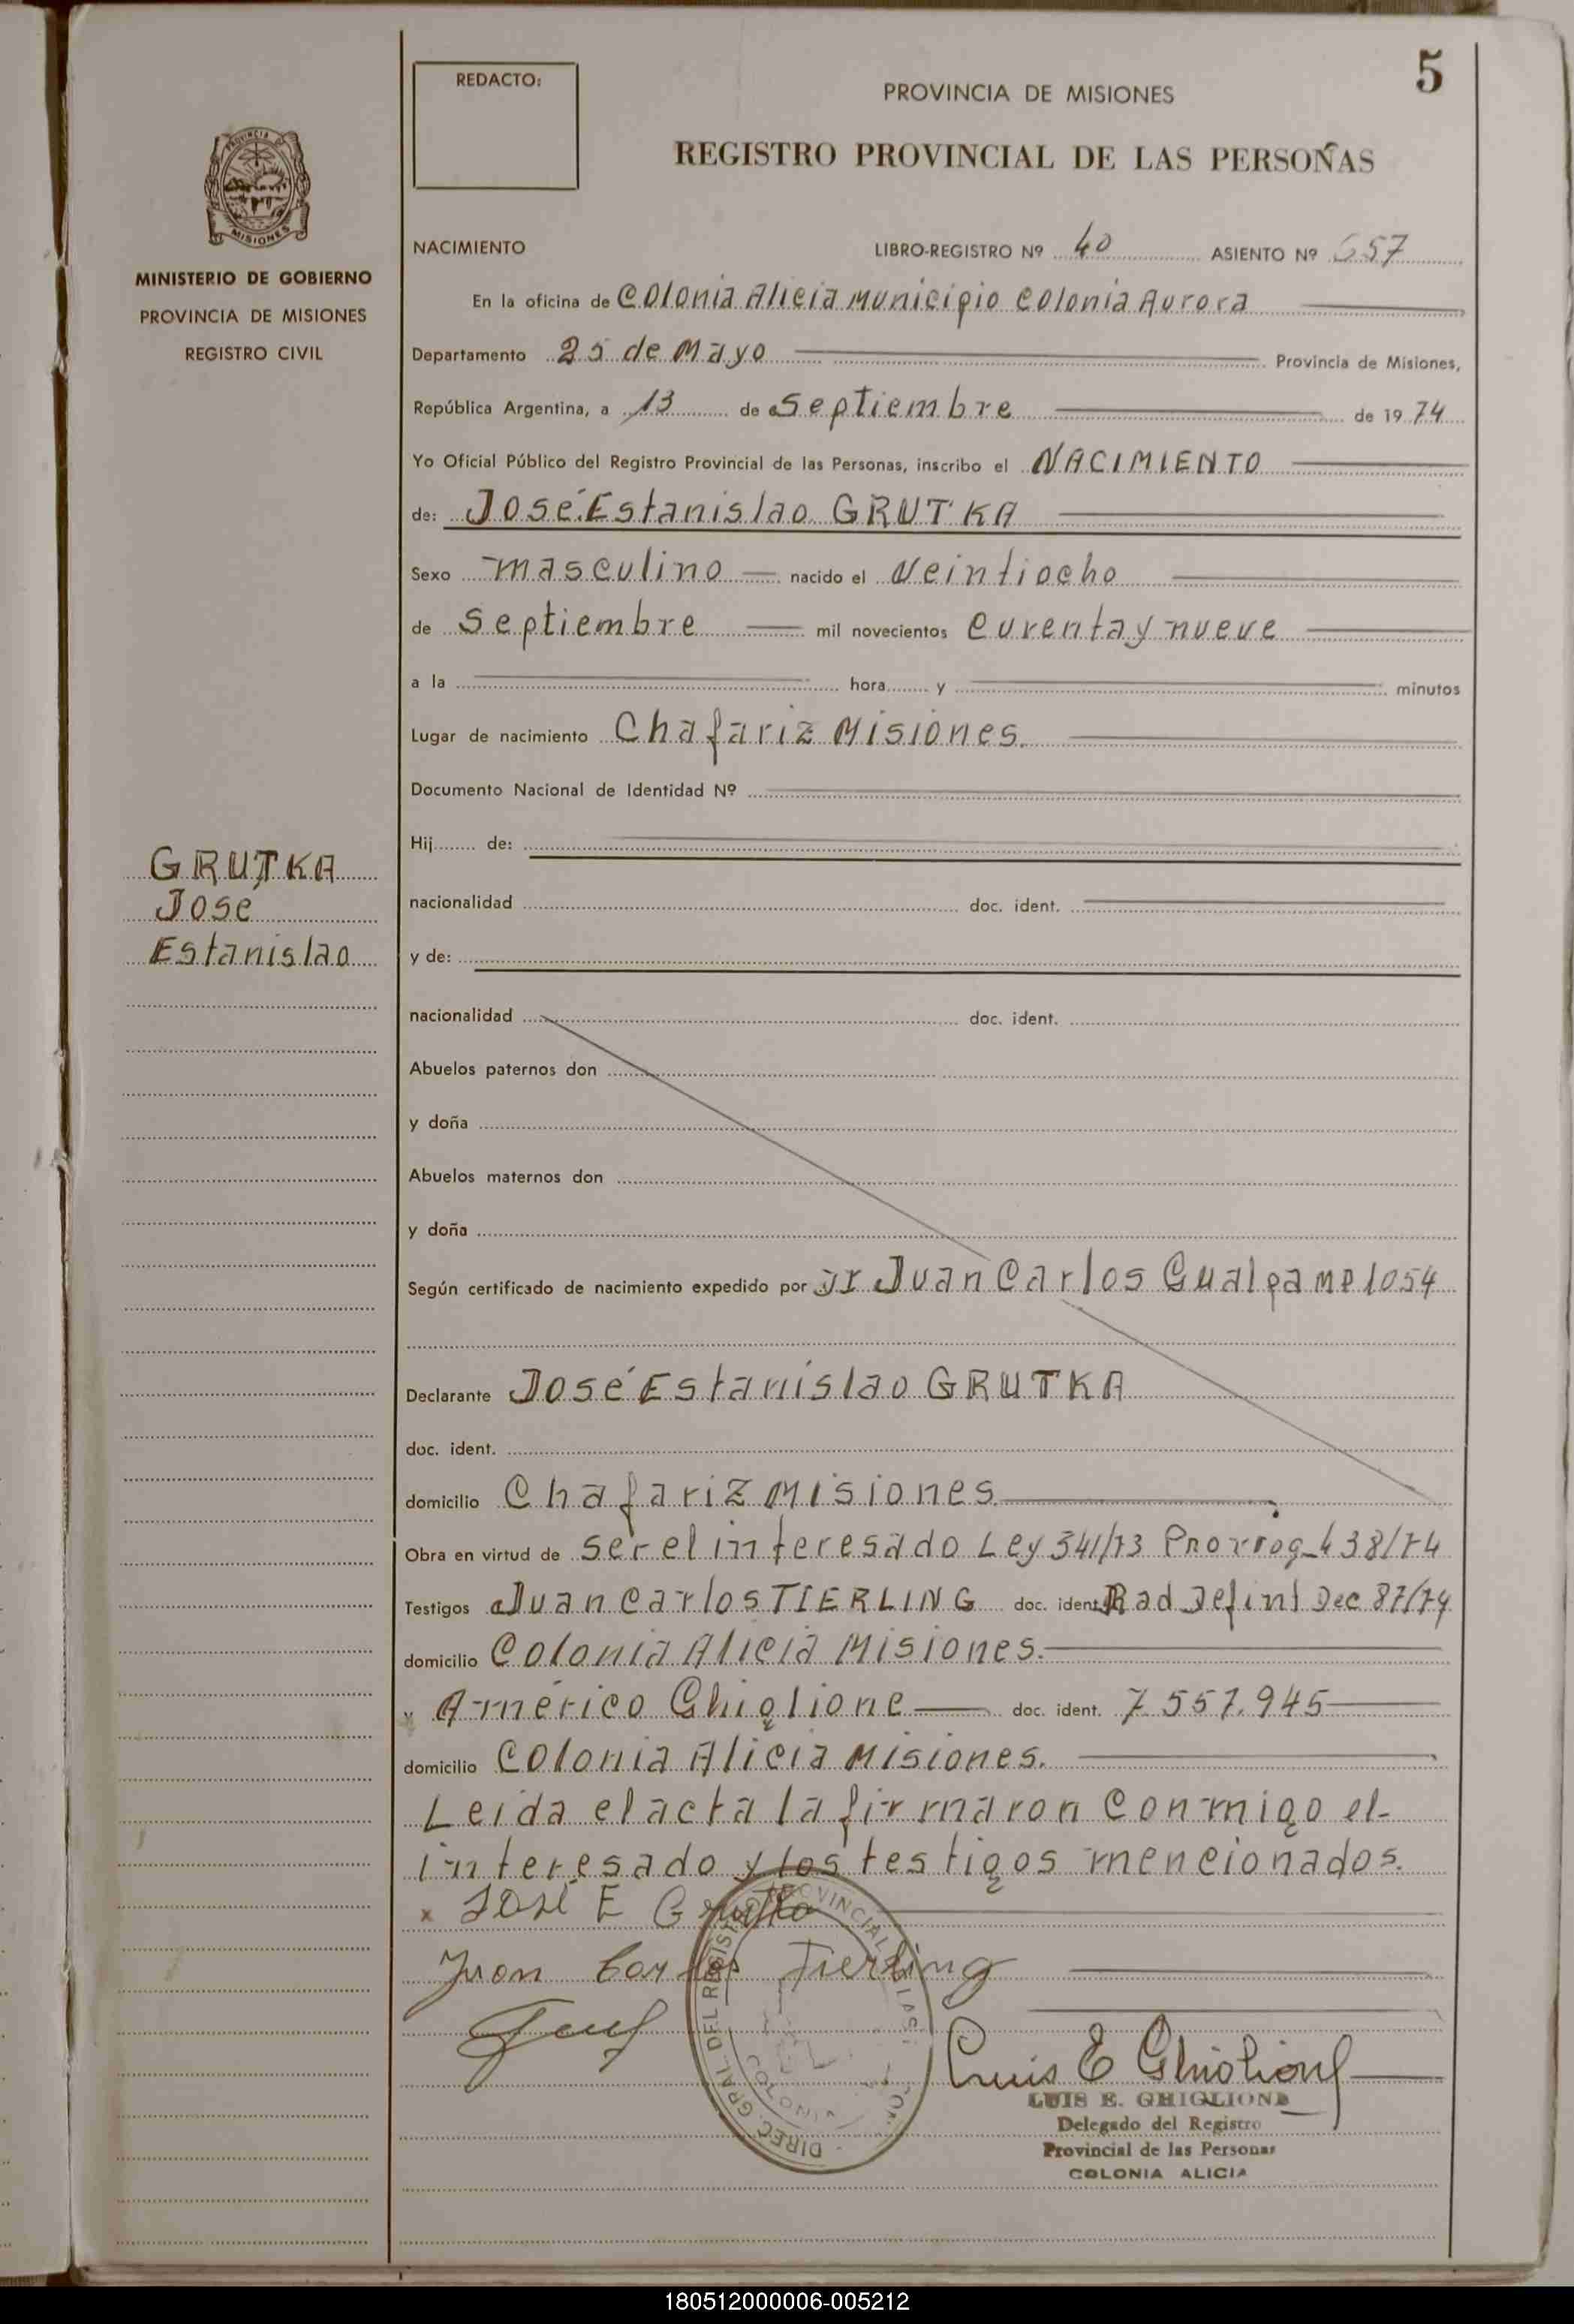 5
REDACTO:
PROVINCIA DE MISIONES
REGISTRO PROVINCIAL DE LAS PERSONAS
MISIONES
MINISTERIO DE GOBIERNO
PROVINCIA DE MISIONES
REGISTRO CIVIL
NACIMIENTO LIBRO-REGISTRO Nº 40 ASIENTO Nº 657
En la oficina de Colonia Alicia Municipio Colonia Aurora
Departamento 25 de Mayo Provincia de Misiones,
República Argentina, a 13 de Septiembre de 1974
Yo Oficial Público del Registro Provincial de las Personas, inscribo el NACIMIENTO
de: José Estanislao GRUTKA
Sexo masculino nacido el Veintiocho
de Septiembre mil novecientos curenta y nueve
a la hora y minutos
Lugar de nacimiento Chafariz Misiones.
Documento Nacional de Identidad Nº
Hij de:
GRUTKA
José
Estanislao
nacionalidad doc. ident.
y de:
nacionalidad doc. ident.
Abuelos paternos don
y doña
Abuelos maternos don
y doña
Según certificado de nacimiento expedido por Juan Carlos Gualpa MP 1054
Declarante José Estanislao GRUTKA
doc. ident.
domicilio Chafariz Misiones.
Obra en virtud de ser el interesado Ley 341/73 Prorrog. 438/74
Testigos Juan Carlos TIERLING doc. ident. Rad Defint Dec 87/74
domicilio Colonia Alicia Misiones.
y Américo Ghiglione doc. ident. 7.557.945
domicilio Colonia Alicia Misiones.
Leida el acta la firmaron conmigo el-
interesado y los testigos mencionados.
x José E Grutka
Juan Carlos Tierling
Luis E Ghiglione
LUIS E. GHIGLIONE
Delegado del Registro
Provincial de las Personas
COLONIA ALICIA
DIREC. GRAL. DEL REGISTRO PROVINCIAL
180512000006-005212